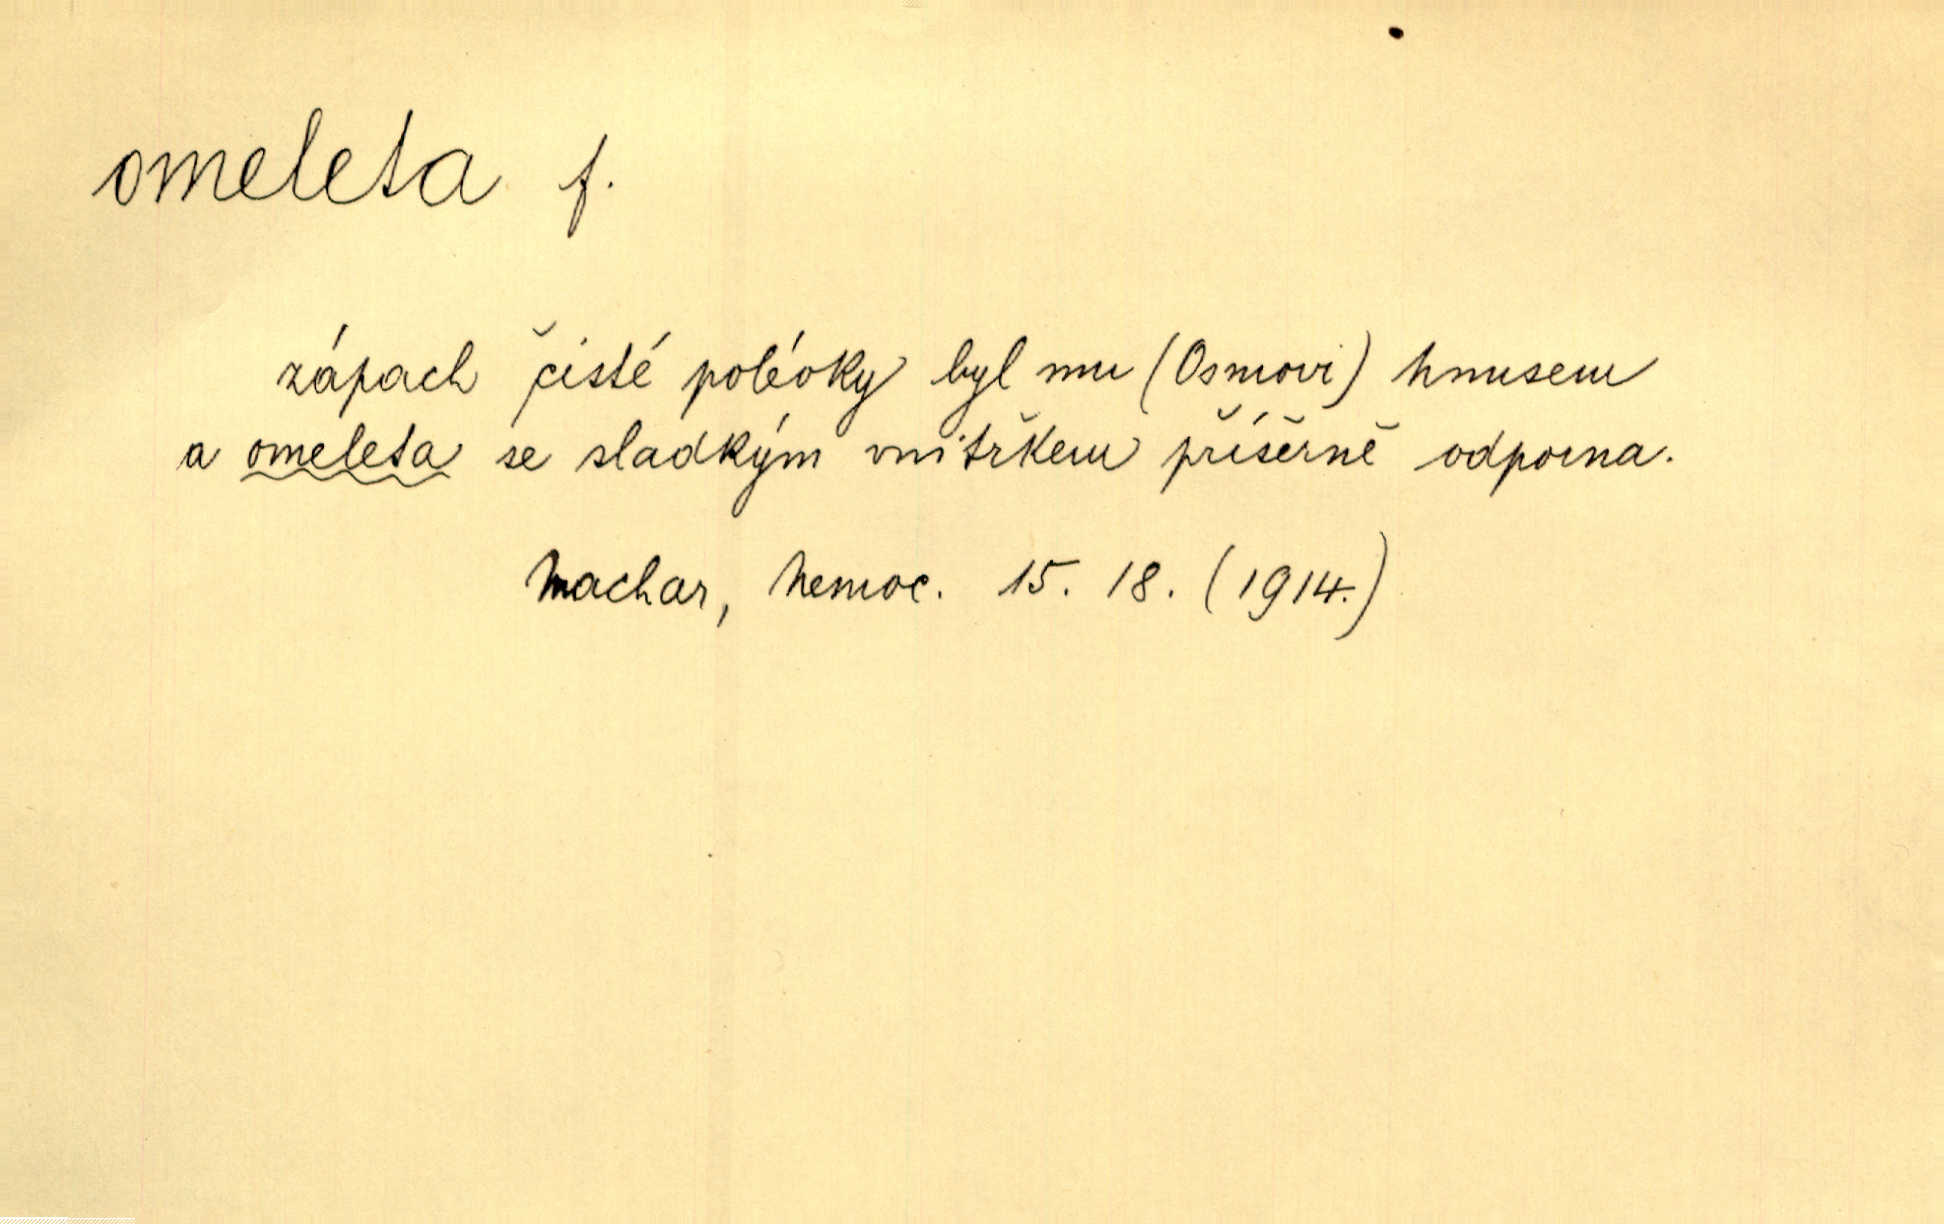 omeleta f.
zápach čisté polévky byl mu (Osmovi) hnusem
a omeleta se sladkým vnitřkem příšerně odporna.
Machar, Nemoc. 15. 18. (1914.)